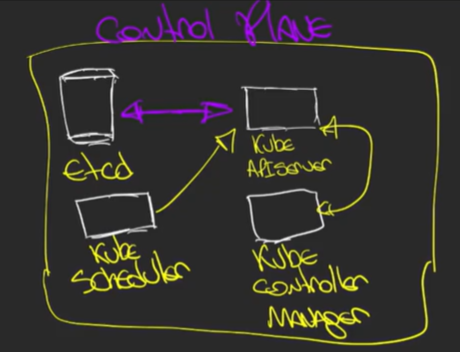 Control Plane
Etcd
Kube
APIServer
Kube
Scheduler
Kube
Controller
Manager